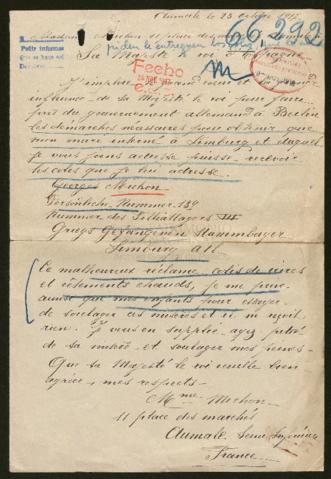 Aumale le 23 octobre 1917
66,292
Madame Michon 11 place des marchés Aumale
piden le entreguen los
Pide informes
Sa Majesté le roi d'Espagne
Fecho
J'implore grand
influence de Sa Majesté le roi pour faire
près du gouvernement allemand à Berlin
les démarches nécessaires pour obtenir que
mon mari interné à Limburg et auquel
je vous joins adresse puisse recevoir
les colis que je lui adresse.
Georges Michon
Persönliche Nummer 189
Nummer des III
Kriegs Gefangenen Stammlager
Limburg a/L
Ce malheureux réclame colis de vivres
et vêtements chauds, je me prive
ainsi que mes enfants pour essayer
de soulager ces misères et il ne reçoit
rien. Je vous en supplie, ayez pitié
de sa misère et soulager mes peines.
Que sa Majesté le roi veuille bien
agréer mes respects.
Mme Michon
11 place des marchés
Aumale Seine Inférieure
France